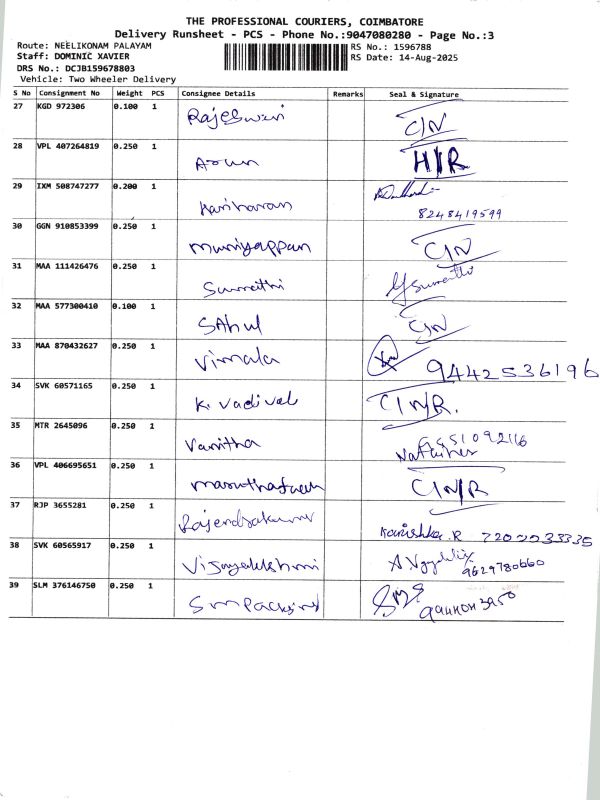 THE PROFESSIONAL COURIERS, COIMBATORE
Delivery Runsheet - PCS - Phone No.:9047080280 - Page No.:3
Route: NEELIKONAM PALAYAM RS No.: 1596788
Staff: DOMINIC XAVIER RS Date: 14-Aug-2025
DRS No.: DCJB159678803
Vehicle: Two Wheeler Delivery
S No Consignment No Weight PCS Consignee Details Remarks Seal & Signature
27 KGD 972306 0.100 1 Rajeswari C/N
28 VPL 407264819 0.250 1 Arun H/R
29 IXM 508747277 0.200 1 Hariharan
8248419599
30 GGN 910853399 0.250 1 Muniyappan C/N
31 MAA 111426476 0.250 1 Sumathi Sumathi
32 MAA 577300410 0.100 1 SAhul C/N
33 MAA 870432627 0.250 1 Vimala 9442536196
34 SVK 60571165 0.250 1 K. Vadivel C/N/R.
35 MTR 2645096 0.250 1 Vanitha
36 VPL 406695651 0.250 1 C/N/R
37 RJP 3655281 0.250 1 Rajendrakumar Kanishka.R
38 SVK 60565917 0.250 1 Vijayalakshmi
9629780660
39 SLM 376146750 0.250 1